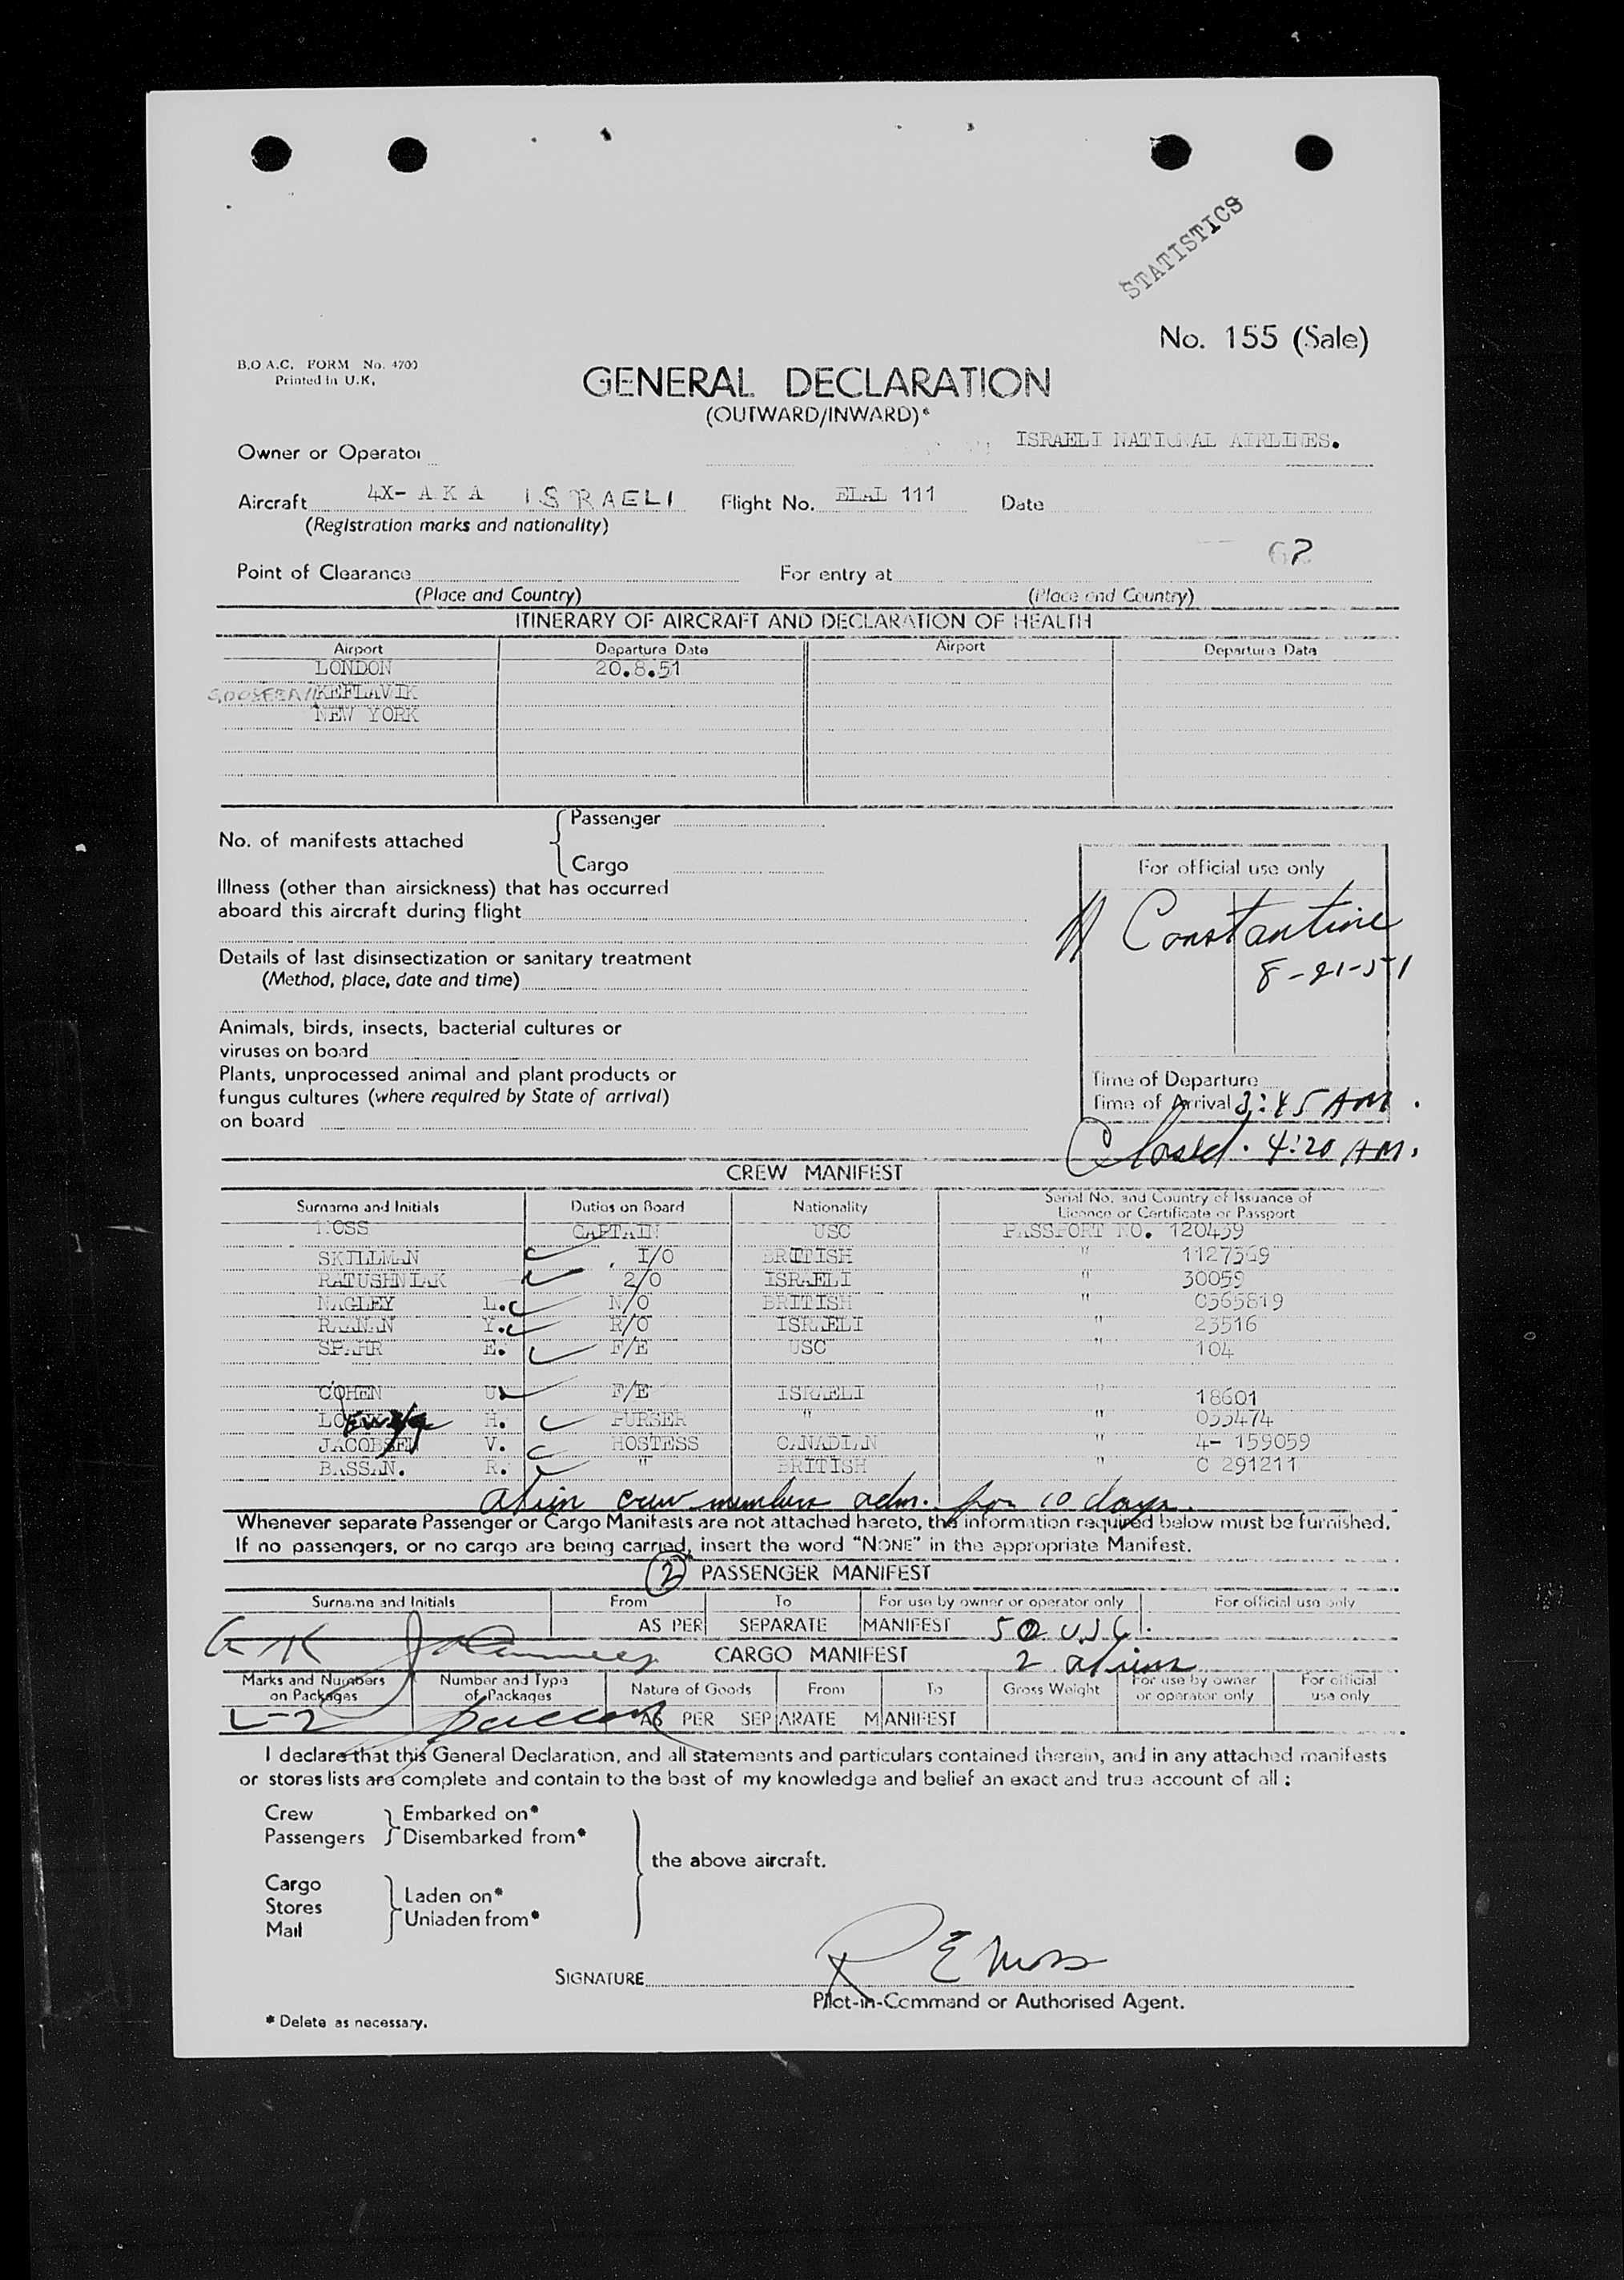 STATISTICS
No. 155 (Sale)
B.O.A.C. FORM No. 4700
Printed in U.K.
GENERAL DECLARATION
(OUTWARD/INWARD)*
Owner or Operator ISRAELI NATIONAL AIRLINES.
Aircraft 4X- A K A ISRAELI Flight No. ELAL 111 Date
(Registration marks and nationality)
62
Point of Clearance For entry at
(Place and Country) (Place and Country)
ITINERARY OF AIRCRAFT AND DECLARATION OF HEALTH
Airport Departure Date Airport Departure Date
LONDON 20.8.51
KEFLAVIK
NEW YORK
No. of manifests attached { Passenger
Cargo
Illness (other than airsickness) that has occurred
aboard this aircraft during flight
Details of last disinsectization or sanitary treatment
(Method, place, date and time)
Animals, birds, insects, bacterial cultures or
viruses on board
Plants, unprocessed animal and plant products or
fungus cultures (where required by State of arrival)
on board
For official use only
Constantine
8-21-51
Time of Departure
Time of Arrival 3:45 AM.
Closed. 4:20 AM.
CREW MANIFEST
Surname and Initials Duties on Board Nationality Serial No. and Country of Issuance of
Licence or Certificate or Passport
MOSS CAPTAIN USC PASSPORT NO. 120439
SKILLMAN I/O BRITISH " 1127369
RATUSHNIAK 2/O ISRAELI " 30059
NAGLEY L. N/O BRITISH " C365819
RAANAN Y. R/O ISRAELI " 23516
SPAHR E. F/E USC " 104
COHEN U. F/E ISRAELI " 18601
H. PURSER " " 033474
JACOBSEN V. HOSTESS CANADIAN " 4- 159059
BASSAN. R. " BRITISH " C 291211
alien crew members adm. for 10 days.
Whenever separate Passenger or Cargo Manifests are not attached hereto, the information required below must be furnished.
If no passengers, or no cargo are being carried, insert the word "NONE" in the appropriate Manifest.
2 PASSENGER MANIFEST
Surname and Initials From To For use by owner or operator only For official use only
AS PER SEPARATE MANIFEST 50 USC.
CARGO MANIFEST 2 aliens
Marks and Numbers on Packages Number and Type of Packages Nature of Goods From To Gross Weight For use by owner or operator only For official use only
L-2 AS PER SEPARATE MANIFEST
I declare that this General Declaration, and all statements and particulars contained therein, and in any attached manifests
or stores lists are complete and contain to the best of my knowledge and belief an exact and true account of all :
Crew } Embarked on*
Passengers } Disembarked from*
the above aircraft.
Cargo
Stores } Laden on*
Mail } Unladen from*
SIGNATURE R E Moss
Pilot-in-Command or Authorised Agent.
* Delete as necessary.